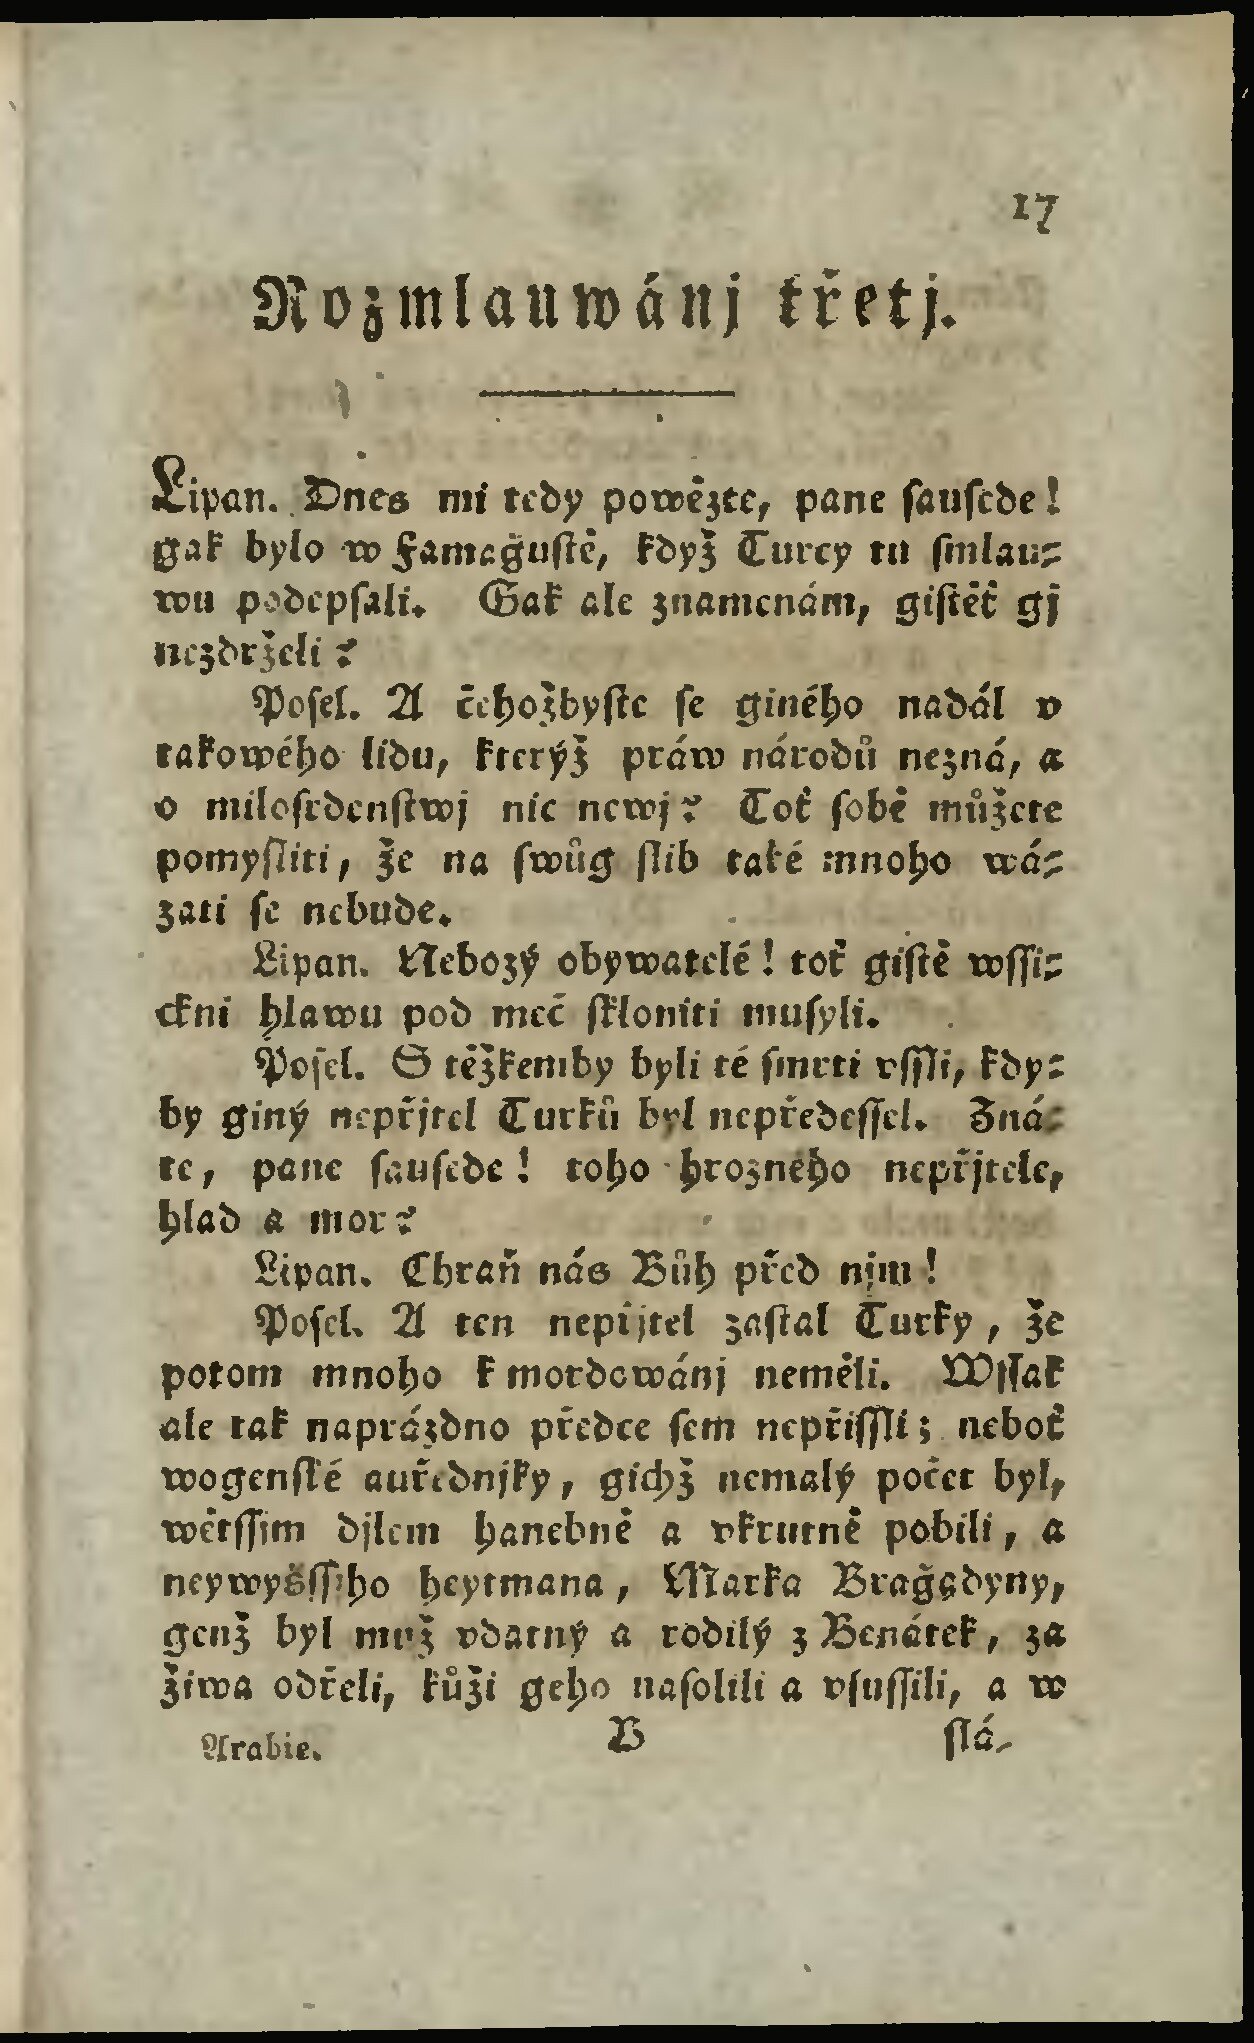 17
Rozmlauwánj třetj.
Lipan. Dnes mi tedy powězte, pane sausede!
gak bylo w Famağustě, když Turcy tu smlau-
wu podepsali. Gak ale znamenám, gistěť gj
nezdrželi?
Posel. A čehožbyste se giného nadál v
takowého lidu, kterýž práw národů nezná, a
o milosrdenstwj nic newj? Toť sobě můžete
pomysliti, že na swůg slib také mnoho wá-
zati se nebude.
Lipan. Nebozý obywatelé! toť gistě wssi-
ckni hlawu pod meč skloniti musyli.
Posel. S těžkemby byli té smrti vssli, kdy-
by giný nepřjtel Turků byl nepředessel. Zná-
te, pane sausede! toho hrozného nepřjtele,
hlad a mor?
Lipan. Chraň nás Bůh před njm!
Posel. A ten nepřjtel zastal Turky, že
potom mnoho k mordowánj neměli. Wssak
ale tak naprázdno předce sem nepřissli; neboť
wogenské auřednjky, gichž nemalý počet byl,
wětssjm djlem hanebně a vkrutně pobili, a
neywyšssjho heytmana, Marka Brağadyny,
genž byl muž vdatný a rodilý z Benátek, za
žiwa odřeli, kůži geho nasolili a vsussili, a w
Arabie. B slá-